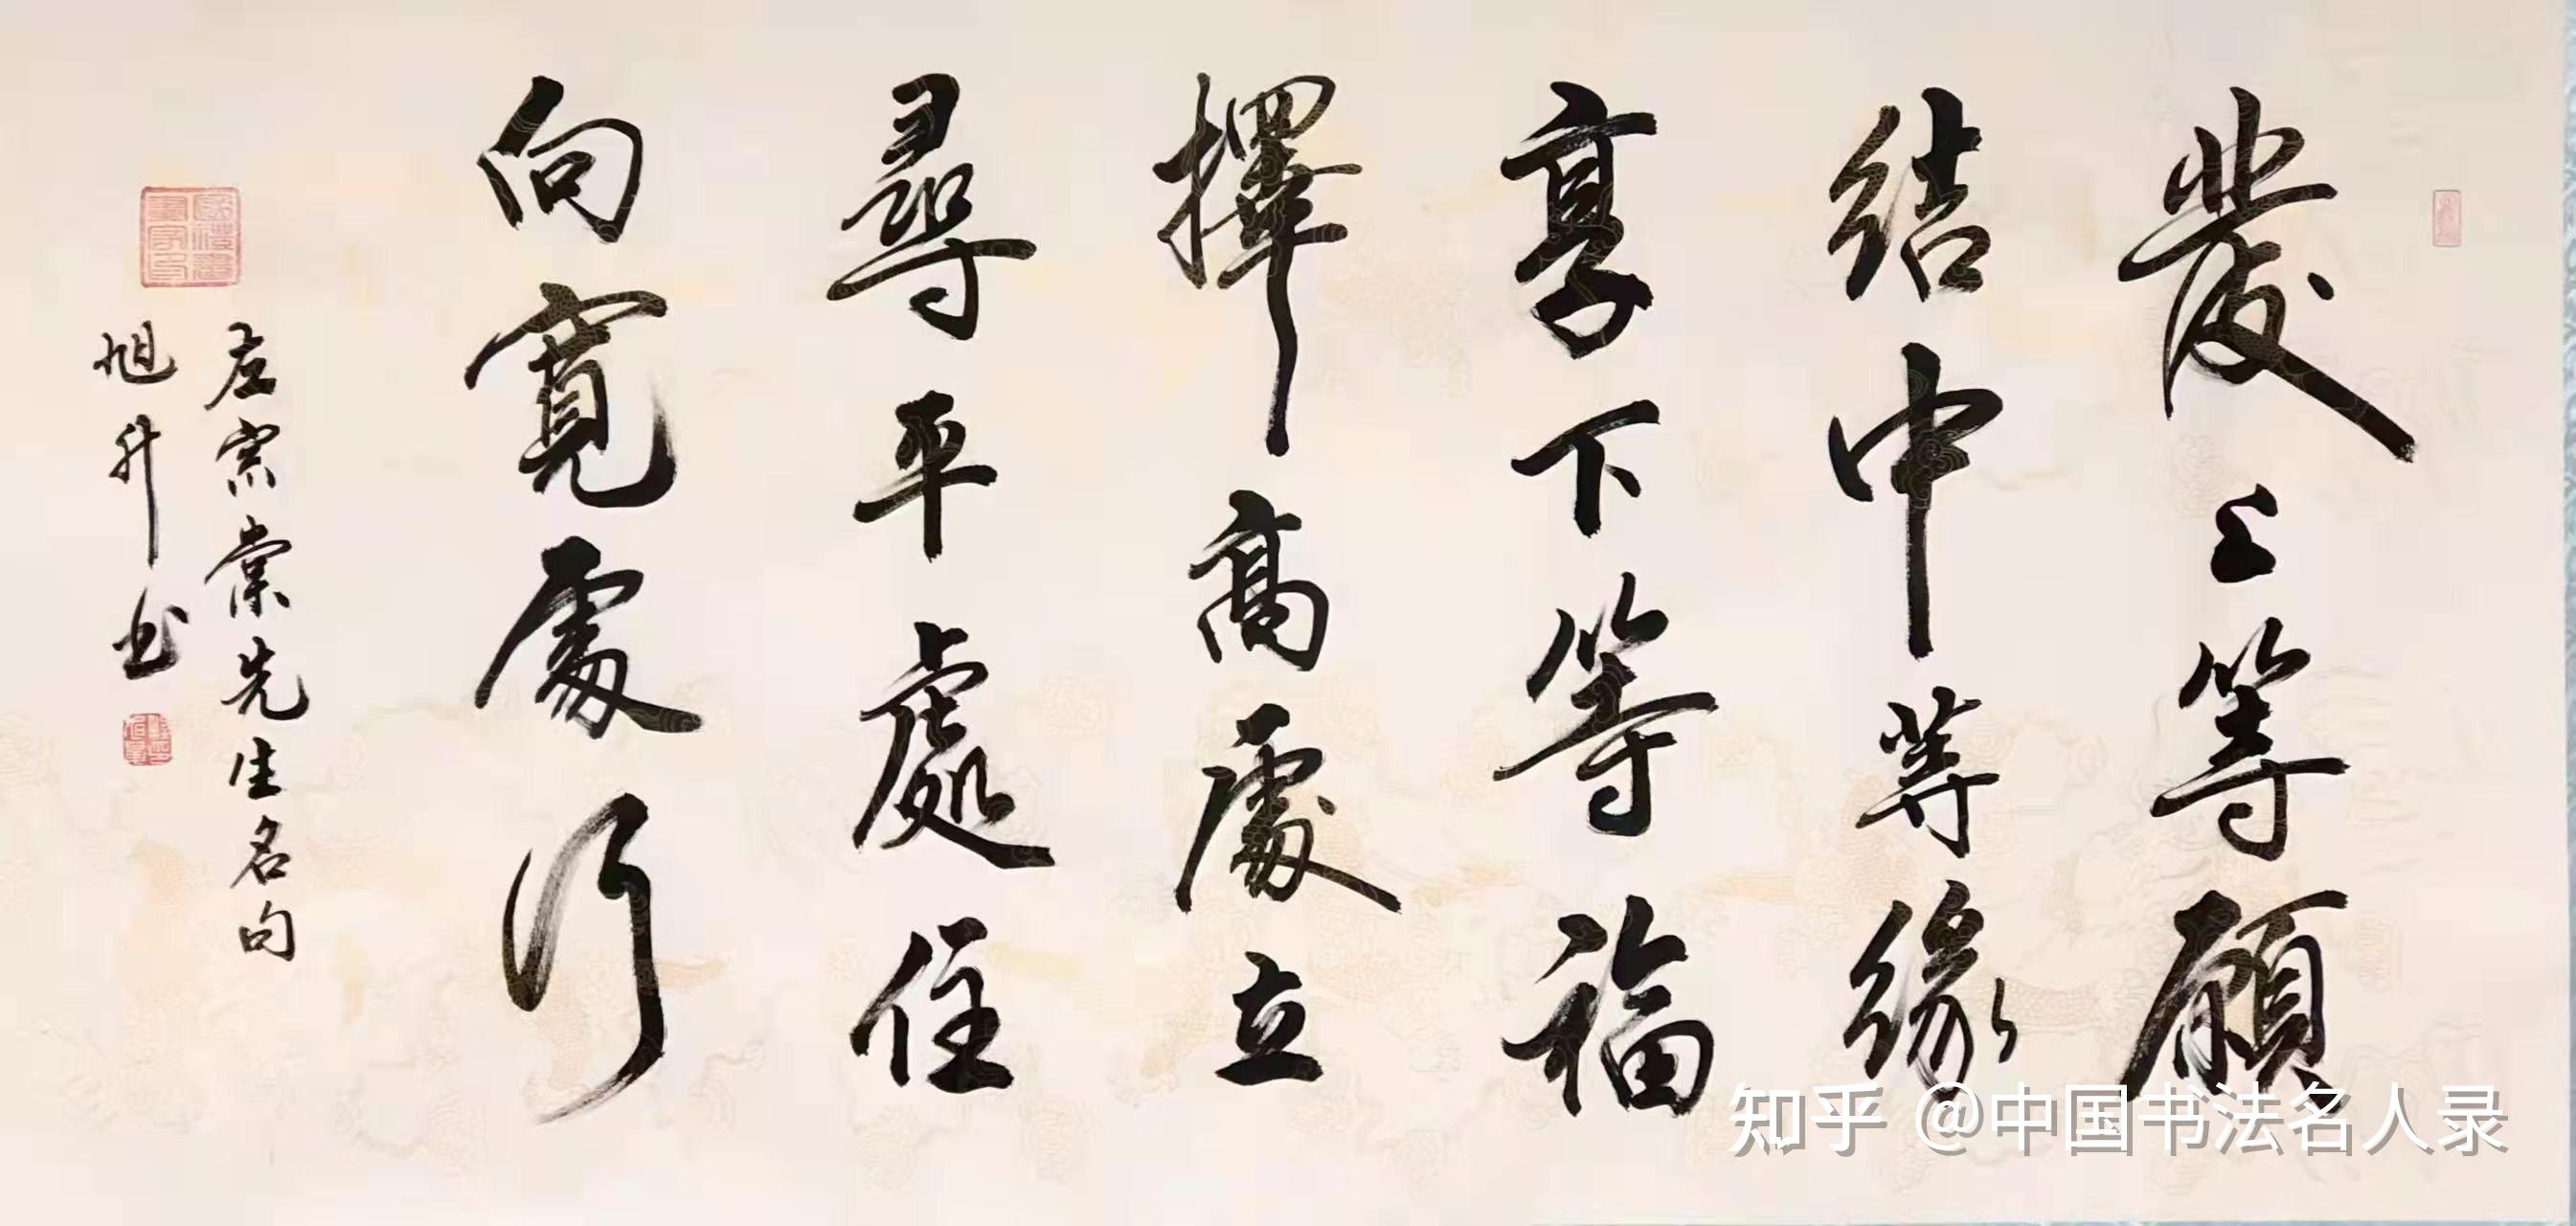 發上等願
结中等緣
享下等福
擇高處立
尋平處住
向寬處行
左宗棠先生名句
旭升书
知乎 @中国书法名人录